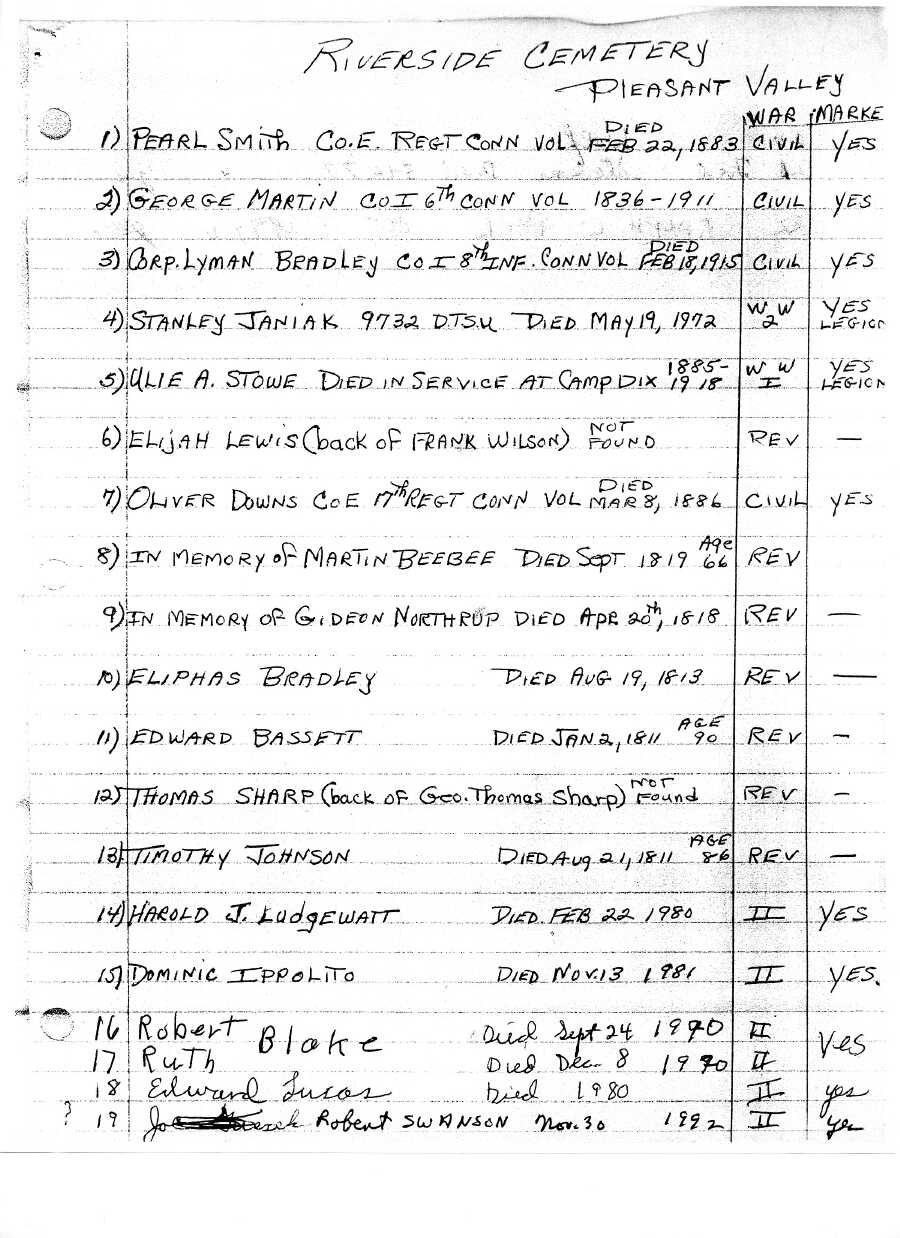 RIVERSIDE CEMETERY
PLEASANT VALLEY
WAR MARKE
1) PEARL SMITH CO.E. REGT CONN VOL DIED FEB 22, 1883 CIVIL YES
2) GEORGE MARTIN CO I 6TH CONN VOL 1836-1911 CIVIL YES
3) CORP. LYMAN BRADLEY CO I 8TH INF. CONN VOL DIED FEB 18, 1915 CIVIL YES
4) STANLEY JANIAK 9732 D.T.S.U DIED MAY 19, 1972 W W 2 YES LEGION
5) ULIE A. STOWE DIED IN SERVICE AT CAMP DIX 1885-1918 W W I YES LEGION
6) ELIJAH LEWIS (back of FRANK WILSON) NOT FOUND REV —
7) OLIVER DOWNS CO E 17th REGT CONN VOL DIED MAR 8, 1886 CIVIL YES
8) IN MEMORY of MARTIN BEEBEE DIED Sept 1819 Age 66 REV
9) IN MEMORY OF GIDEON NORTHRUP DIED APR 20th, 1818 REV —
10) ELIPHAS BRADLEY DIED AUG 19, 1813 REV —
11) EDWARD BASSETT DIED JAN 2, 1811 AGE 90 REV -
12) THOMAS SHARP (back of Geo. Thomas Sharp) NOT Found REV -
13) TIMOTHY JOHNSON DIED Aug 21, 1811 AGE 86 REV —
14) HAROLD J. LudgEWATT DIED. FEB 22 1980 II YES
15) DOMINIC IPPOLITO DIED NOV. 13 1981 II YES.
16 Robert Blake Died Sept 24 1990 II Yes
17 Ruth Died Dec. 8 1990 II
18 Edward Lucas Died 1980 II yes
? 19 Robert SWANSON Nov. 30 1992 II yes